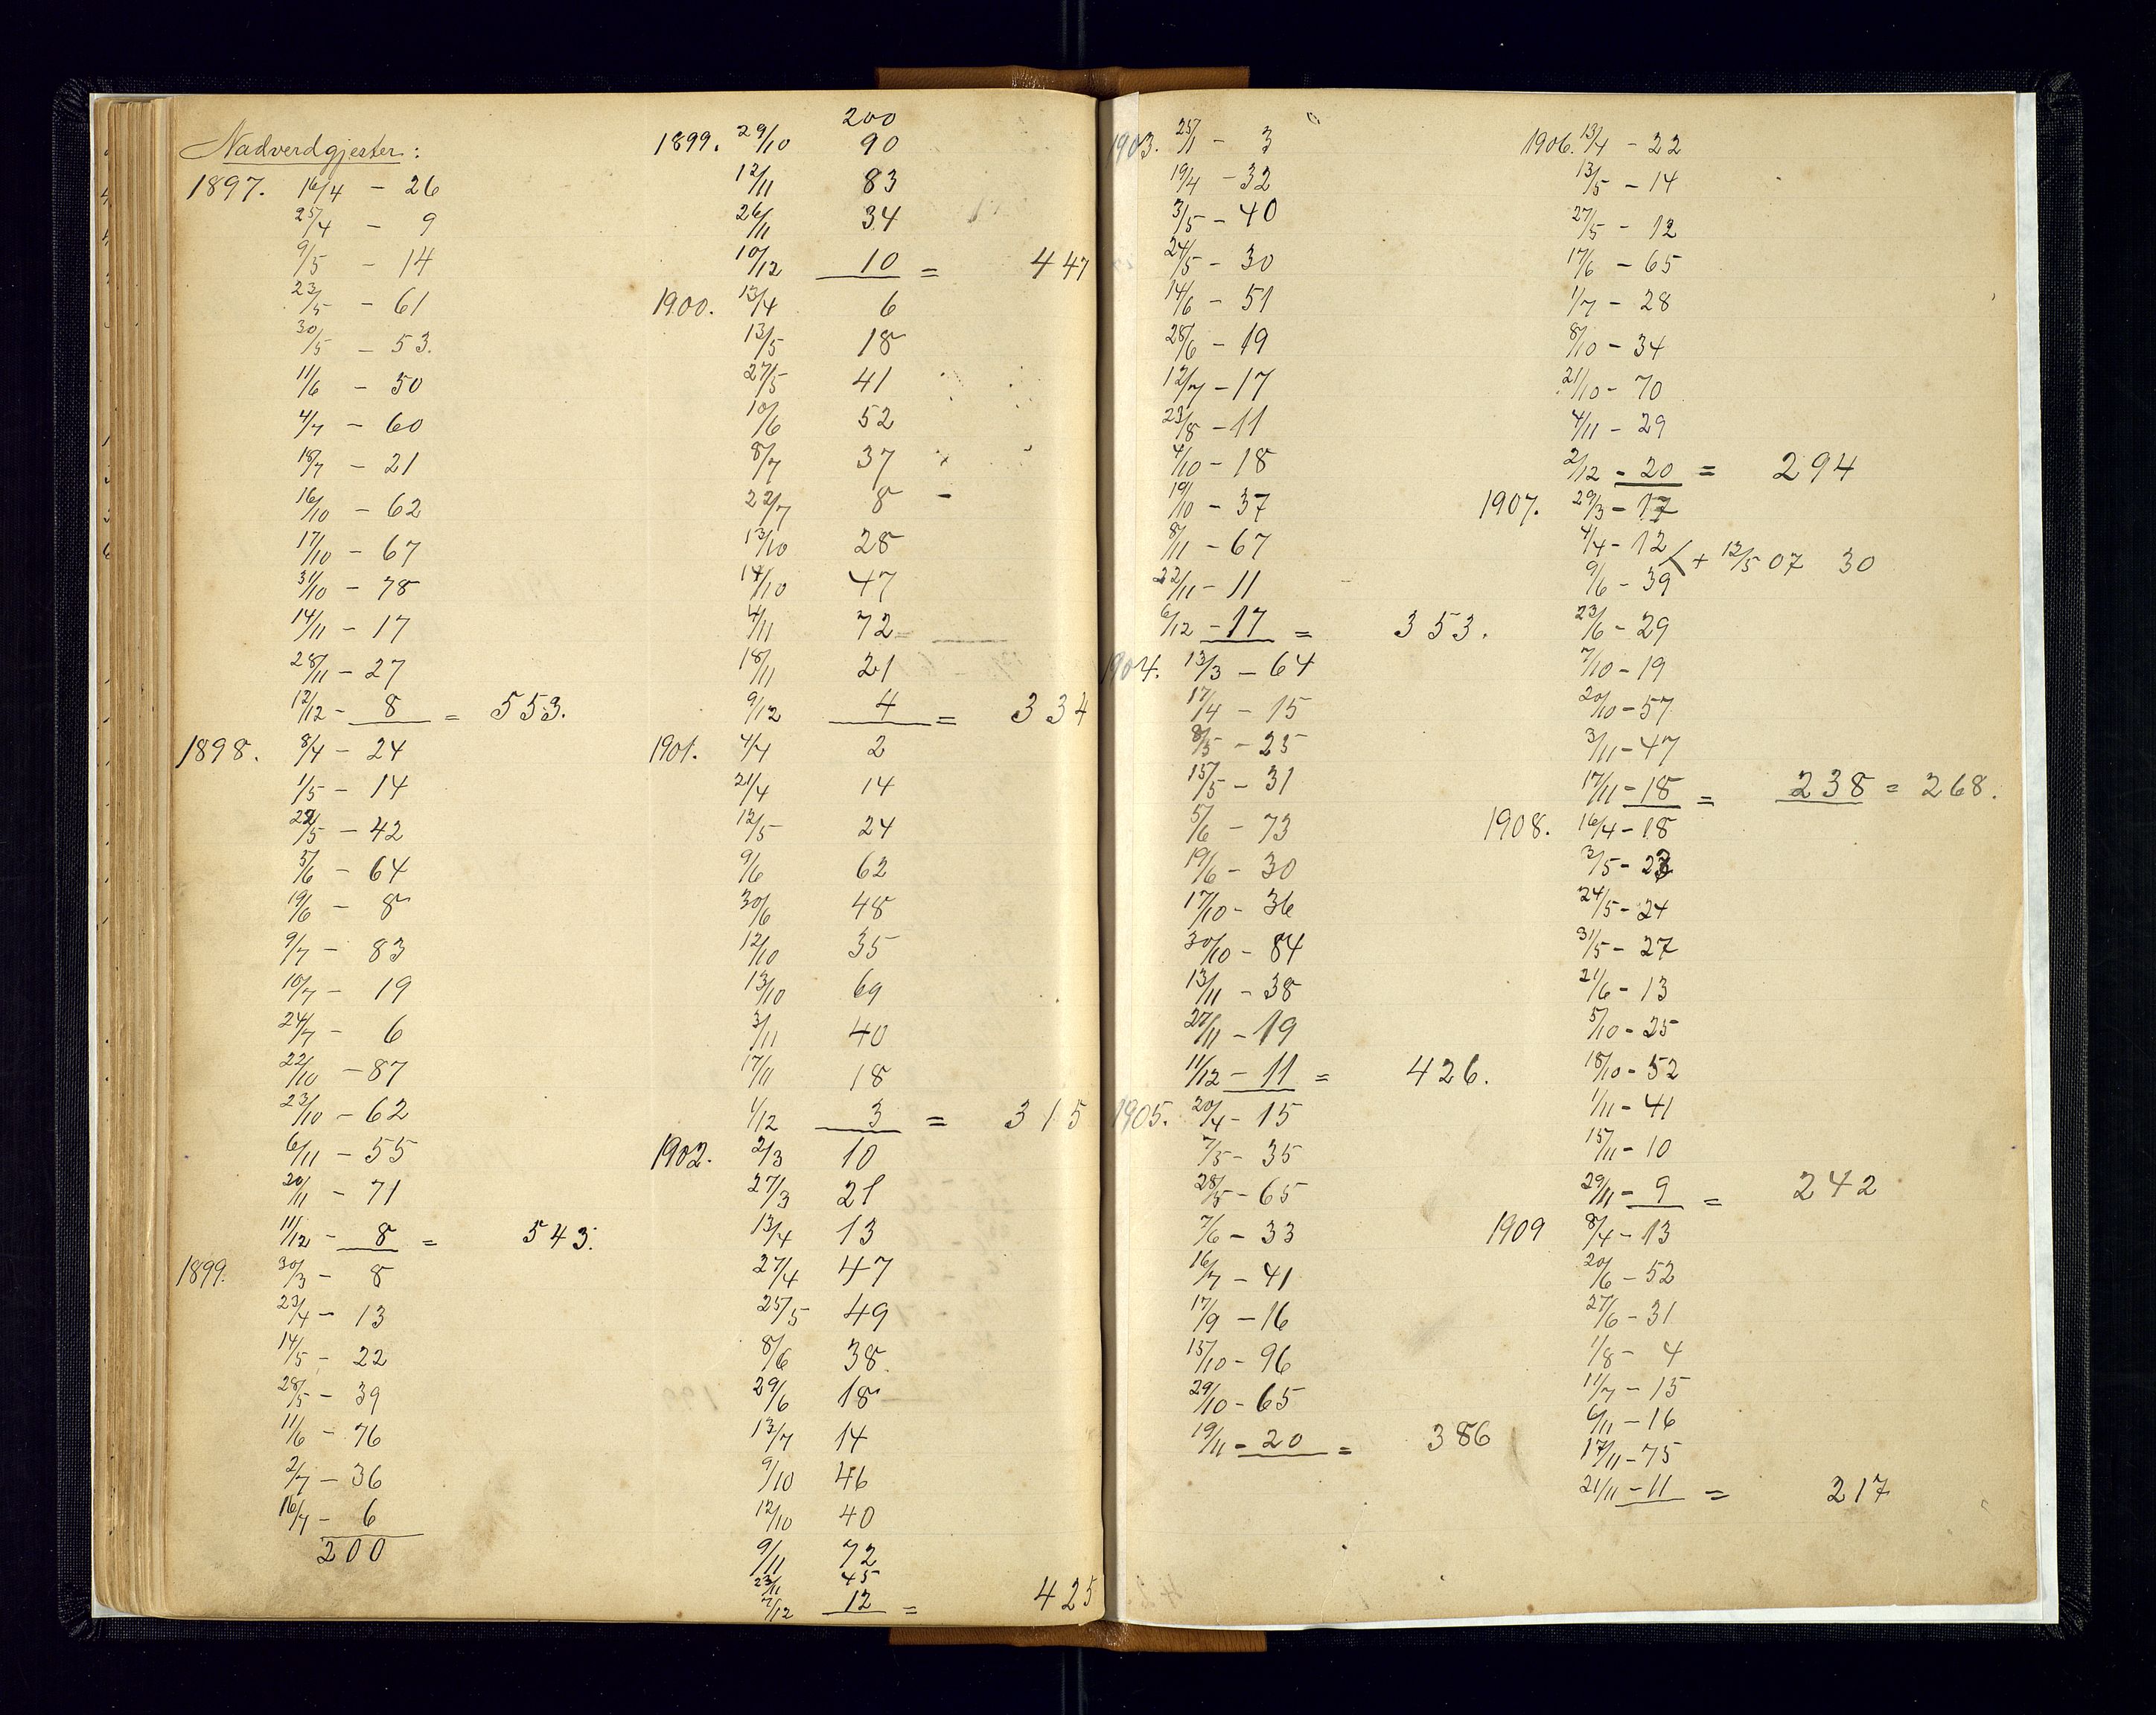 Nadverdgjester:
1897. 16/4 - 26
25/4 - 9
9/5 - 14
23/5 - 61
30/5 - 53.
11/6 - 50
4/7 - 60
18/7 - 21
16/10 - 62
17/10 - 67
31/10 - 78
14/11 - 17
28/11 - 27
12/12 - 8 = 553.
1898. 8/4 - 24
1/5 - 14
22/5 - 42
5/6 - 64
19/6 - 8
9/7 - 83
10/7 - 19
24/7 - 6
22/10 - 87
23/10 - 62
6/11 - 55
20/11 - 71
11/12 - 8 = 543.
1899. 30/3 - 8
23/4 - 13
14/5 - 22
28/5 - 39
11/6 - 76
2/7 - 36
16/7 - 6
200
200
1899. 29/10 90
12/11 83
26/11 34
10/12 10 = 447
1900. 13/4 6
13/5 18
27/5 41
10/6 52
8/7 37
22/7 8 -
13/10 28
14/10 47
4/11 72
18/11 21
9/12 4 = 334
1901. 4/4 2
21/4 14
12/5 24
9/6 62
30/6 48
12/10 35
13/10 69
3/11 40
17/11 18
1/12 3 = 315
1902. 2/3 10
27/3 21
13/4 13
27/4 47
25/5 49
8/6 38
29/6 18
13/7 14
9/10 46
12/10 40
9/11 72
23/11 45
7/12 12 = 425
1903. 25/1 - 3
19/4 - 32
3/5 - 40
24/5 - 30
14/6 - 51
28/6 - 19
12/7 - 17
23/8 - 11
4/10 - 18
19/10 - 37
8/11 - 67
22/11 - 11
6/12 - 17 = 353.
1904. 13/3 - 64
17/4 - 15
8/5 - 25
15/5 - 31
5/6 - 73
19/6 - 30
17/10 - 36
30/10 - 84
13/11 - 38
27/11 - 19
11/12 - 11 = 426.
1905. 20/4 - 15
7/5 - 35
28/5 - 65
7/6 - 33
16/7 - 41
17/9 - 16
15/10 - 96
29/10 - 65
19/11 - 20 = 386
1906. 13/4 - 22
13/5 - 14
27/5 - 12
17/6 - 65
1/7 - 28
8/10 - 34
21/10 - 70
4/11 - 29
2/12 - 20 = 294
1907. 29/3 - 17
4/4 - 12
+ 12/5 07 30
9/6 - 39
23/6 - 29
7/10 - 19
20/10 - 57
3/11 - 47
17/11 - 18 = 238 = 268.
1908. 16/4 - 18
3/5 - 23
24/5 - 24
31/5 - 27
21/6 - 13
5/10 - 25
18/10 - 52
1/11 - 41
15/11 - 10
29/11 - 9 = 242
1909 8/4 - 13
20/6 - 52
27/6 - 31
1/8 - 4
11/7 - 15
6/11 - 16
17/11 - 75
21/11 - 11 = 217